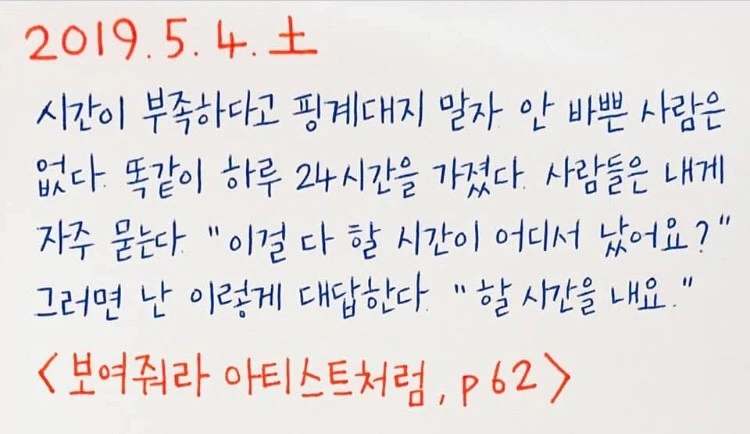 2019.5.4.土
시간이 부족하다고 핑계대지 말자 안 바쁜 사람은
없다. 똑같이 하루 24시간을 가졌다. 사람들은 내게
자주 묻는다. "이걸 다 할 시간이 어디서 났어요?"
그러면 난 이렇게 대답한다. "할 시간을 내요."
<보여줘라 아티스트처럼, p62>